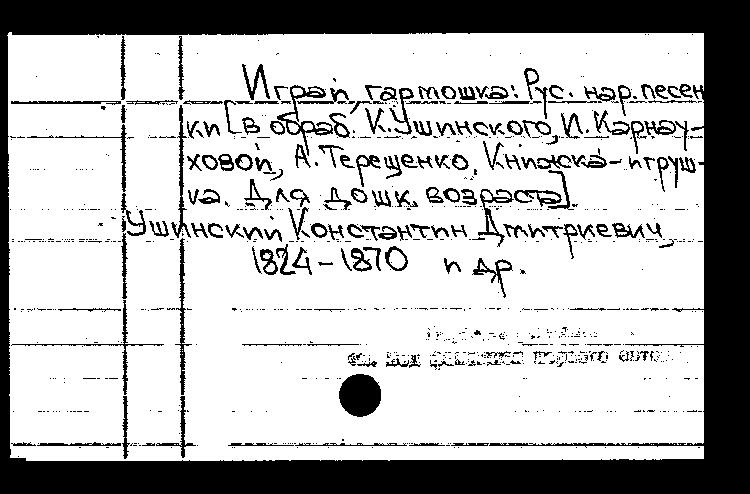 Играй, гармошка: Рус. нар. песен
ки [в обраб. К.Ушинского, И. Карнау-
ховой, А. Терещенко. Книжка-игруш-
ка. Для дошк. возраста].
Ушинский Константин Дмитриевич,
1824-1870 и др.
см. под фамилией первого автора